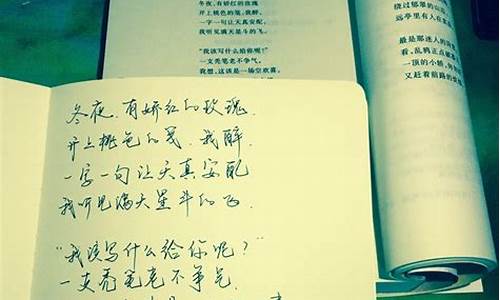 冬夜，有娇红的玫瑰
开上桃色的笺，我醉，
一字一句让天真安配，
我听见满天星斗的飞。
“我该写什么给你呢？”
一支秃笔老不争气，
我想，这该是一场空欢喜。
绕过郁翠的山
远亭里有人在
最是那迷人的
看，乱鸦正点
一顶的小轿，
又赶着前路的
冬夜，有娇红的玫瑰，
开上桃色的笺，我醉，
一字一句让天真安配
我听见满天星斗的飞。
“我该写什么给你呢？”
一支秃笔老不争气。